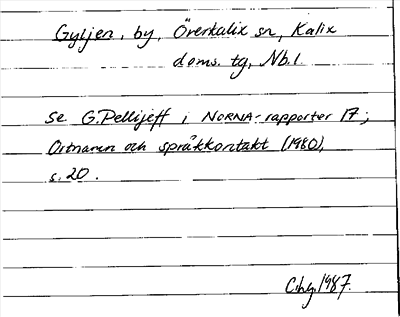 Gyljen, by, Överkalix sn, Kalix
doms. tg, Nb.l.
se G. Pellijeff i NORNA-rapporter 17;
Ortnamn och språkkontakt (1980),
s. 20.
C.hg. 1987.